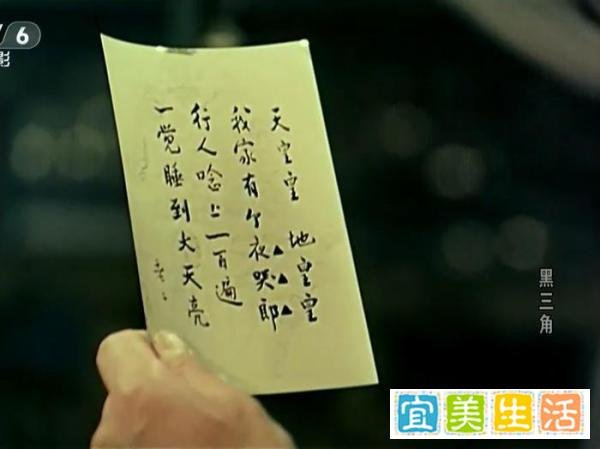 6
影
天皇皇 地皇皇
我家有个夜哭郎
行人唸上一百遍
一觉睡到大天亮
黑三角
宜美生活